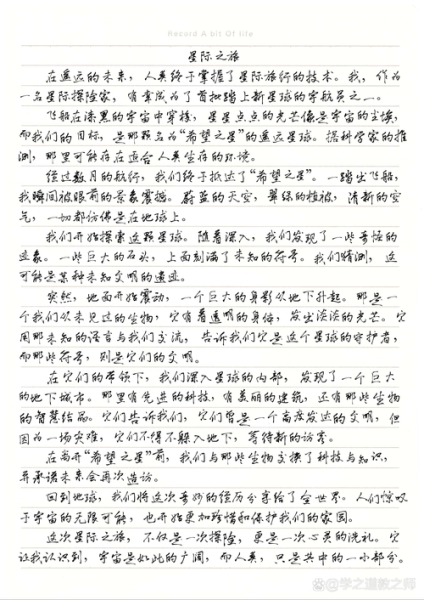 Record A bit Of life
星际之旅
在遥远的未来，人类终于掌握了星际旅行的技术。我，作为
一名星际探险家，有幸成为了首批踏上新星球的宇航员之一。
飞船在漆黑的宇宙中穿梭，星星点点的光芒像是宇宙的尘埃，
而我们的目标，是那颗名为“希望之星”的遥远星球。据科学家的推
测，那里可能存在适合人类生存的环境。
经过数月的航行，我们终于抵达了“希望之星”。一踏出飞船，
我瞬间被眼前的景象震撼。蔚蓝的天空，翠绿的植被，清新的空
气，一切都仿佛是在地球上。
我们开始探索这颗星球。随着深入，我们发现了一些奇怪的
迹象。一些巨大的石头，上面刻满了未知的符号。我们猜测，这
可能是某种未知文明的遗迹。
突然，地面开始震动，一个巨大的身影从地下升起。那是一
个我们从未见过的生物，它有着透明的身体，发出淡淡的光芒。它
用那未知的语言与我们交流，告诉我们它是这个星球的守护者，
而那些符号，则是它们的文明。
在它们的带领下，我们深入星球的内部，发现了一个巨大
的地下城市。那里有先进的科技，有美丽的建筑，还有那些生物
的智慧结晶。它们告诉我们，它们曾是一个高度发达的文明，但
因为一场灾难，它们不得不躲入地下，等待新的访客。
在离开“希望之星”前，我们与那些生物交换了科技与知识，
并承诺未来会再次造访。
回到地球，我们将这次奇妙的经历分享给了全世界。人们惊叹
于宇宙的无限可能，也开始更加珍惜和保护我们的家园。
这次星际之旅，不仅是一次探险，更是一次心灵的洗礼。它
让我认识到，宇宙是如此的广阔，而人类，只是其中的一小部分。
@学之道教之师